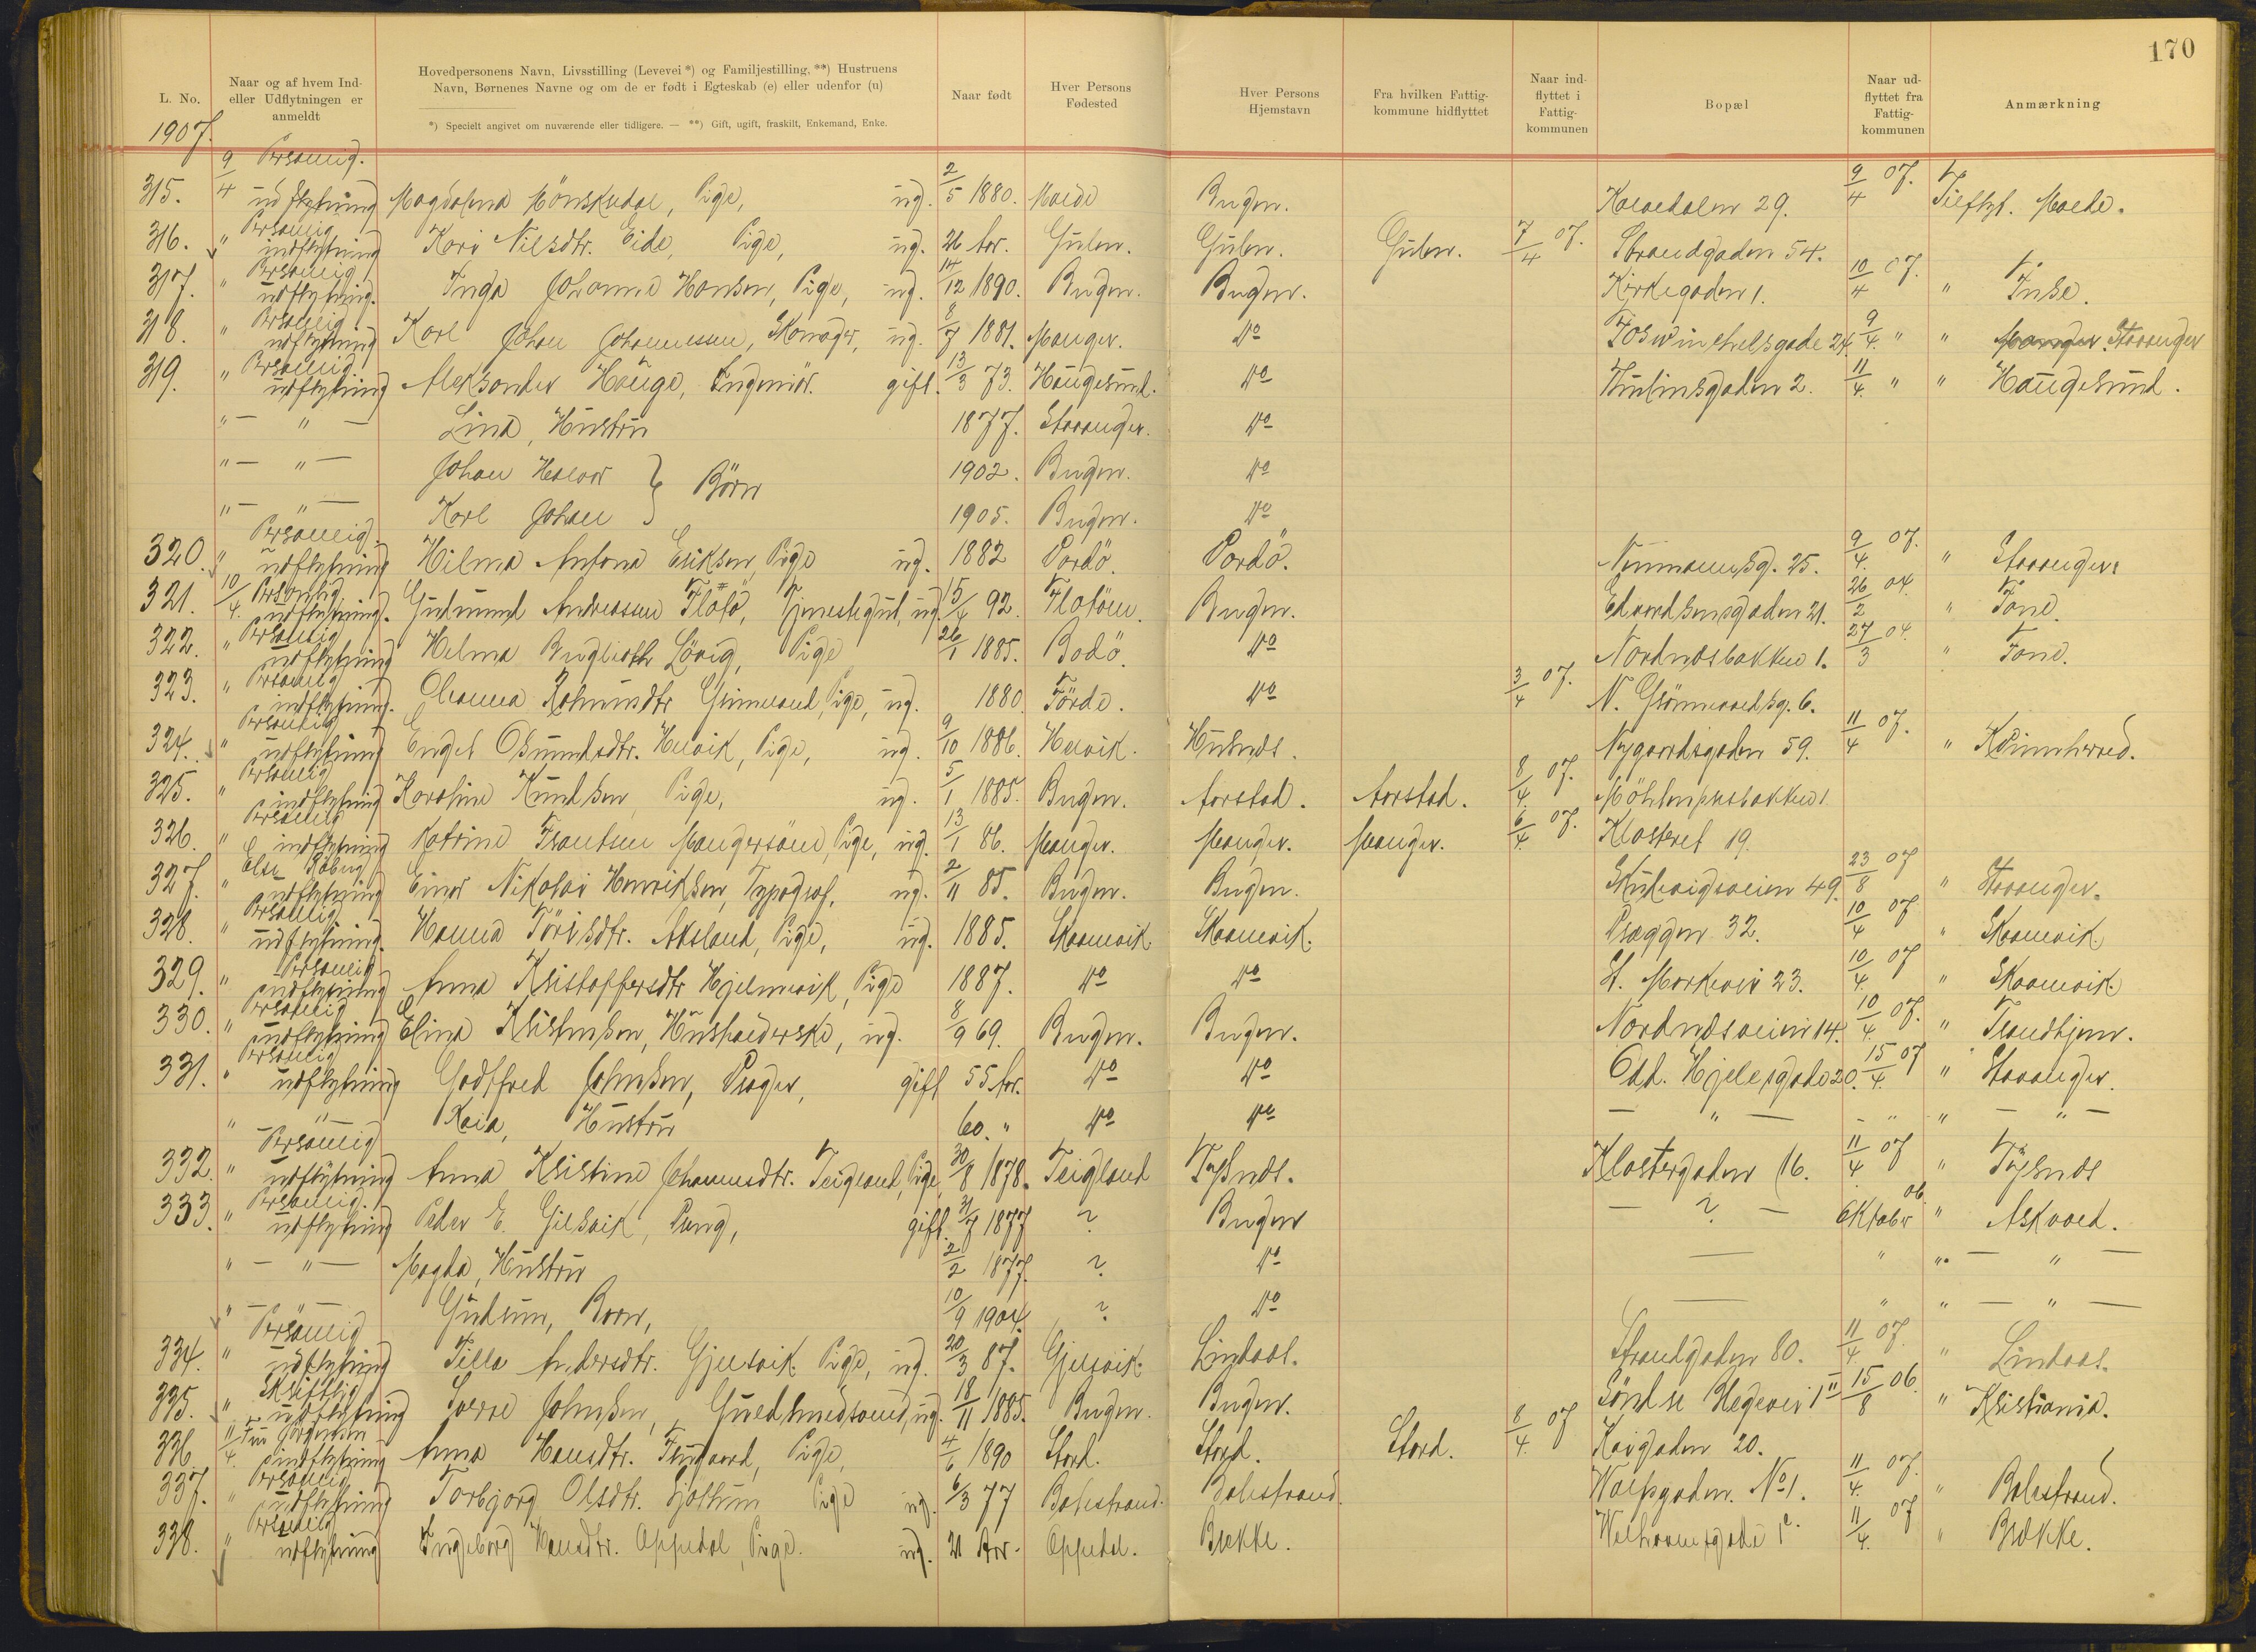 170
L. No.
Naar og af hvem Ind- eller Udflytningen er anmeldt
Hovedpersonens Navn, Livsstilling (Levevei *) og Familjestilling, **) Hustruens Navn, Børnenes Navne og om de er født i Egteskab (e) eller udenfor (u)
*) Specielt angivet om nuværende eller tidligere. — **) Gift, ugift, fraskilt, Enkemand, Enke.
Naar født
Hver Persons Fødested
Hver Persons Hjemstavn
Fra hvilken Fattig- kommune hidflyttet
Naar ind- flyttet i Fattig- kommunen
Bopæl
Naar ud- flyttet fra Fattig- kommunen
Anmærkning
1907.
315. 9/4 Personlig. udflytning Magdalena Mönskedal, Pige, ug. 2/5 1880. Bergen. 29. 9/4 07. Tilflyt.
316. " Personlig indflytning Kari Nilsdtr. Eide, Pige, ug. 26 Aar. Gulen. Gulen. Gulen. 7/4 07. Strandgaden 54.
317. " Personlig udflytning. Inga Johanne Hansen, Pige, ug. 14/12 1890. Bergen. Bergen. Kirkegaden 1. 10/4 07. "
318. " Personlig udflytning Karl Johan Johannessen, ug. 8/7 1881. Manger. do 24. 9/4 " " Manger. Stavanger
319. " Personlig udflytning Aleksander Hauge, Ingeniör. gift. 13/3 73. Haugesund. do 2. 11/4. " " Haugesund.
" — " — Lina, Hustru 1877. Stavanger. do
" — " — Johan Halvor } Börn 1902. Bergen. do
" — " — Karl Johan 1905. Bergen. do
320. " Personlig udflytning Hilma Antona Eriksen, Pige ug. 1882 Vardö. Vardö. Nymansg. 25. 9/4. 07. " Stavanger
321. 10/4. Personlig udflytning. Gudmund Andreassen Flötö, Tjenestegut, ug. 15/4 92. Bergen. Edvardsensgaden 21. 26/2 04. " Fane.
322. " Personlig udflytning Helma Lövig, Pige 26/1 1885. Bodö. do Nordnesbakken 1. 27/3 04. " Fane.
323. " Personlig indflytning. Pige, ug. 1880 Förde. do 3/4 07. N. 6.
324. " Personlig udflytning Engel Osmundsdtr. Hervik, Pige, ug. 9/10 1886. Hervik. Nygaardsgaden 59. 11/4 07. " Kvinnherred.
325. " Personlig indflytning Karoline Knudsen, Pige, ug. 5/1 1885. Bergen. Aarstad. Aarstad. 8/4. 07. Möhlenprisbakken 1
326. " Personlig indflytning Katrine Frantsen Pige, ug. 13/1 86. Manger. Manger. Manger. 6/4. 07. Klosteret 19.
327. " udflytning Einar Nikolai Henriksen, Typograf, ug. 2/11 85. Bergen. Bergen. Skutevigsveien 49. 23/8 07 " Stavanger.
328. " Personlig udflytning. Hanna Aksland, Pige, ug. 1885. Skaanevik Skaanevik. Vaaggen 32. 10/4 07 " Skaanevik.
329. " Personlig udflytning Anna Kristoffersdtr Hjelmevik, Pige 1887. do do St. Markevei 23. 10/4. 07 " Skaanevik.
330. " Personlig udflytning Elina Kristensen, Husholderske, ug. 8/9 69. Bergen. Bergen. Nordnesveien 14. 10/4. 07. " Trondhjem.
331. " Personlig udflytning Godtfred Johnsen, Prager, gift 55 Aar. do do Odd. Hjeltesgade 20. 15/4. 07 " Stavanger.
" " — Kaia, Hustru 60. " do do — " — - " " — " —
332. " Personlig udflytning Anna Kristine Johannesdtr. Teigland, Pige, 30/8 1878. Teigland Tysnes. Klostergaden 16. 11/4 07 " Tysnes
333. " Personlig. udflytning Peder E. Gilsvik, gift. 31/7 1877 ? Bergen — ? — Oktober 06. " Askvoll.
" — " — Magda, Hustru 2/2 1877. ? do — " " — " —
" — " — Gudrun, Barn, 10/9 1904. ? do — " " — " —
334. " Personlig udflytning Tilla Andersdtr. Gjervik. Pige, ug. 20/3 87. Gjervik. Lindaas. Strandgaden 80. 11/4. 07. " Lindaas.
335. " Skriftlig udflytning Sverre Johnsen, Guldsmedsvend, ug. 18/11 1885. Bergen. Bergen. Söndre 15/8 06. " Kristiania.
336. 11/4. Fru Jörgensen indflytning Anna Hansdtr. Pige, 4/6 1890 Stord. Stord. Stord. 8/4. 07 Kaigaden 20.
337. " Personlig udflytning Torbjorg Olsdtr. Pige ug. 6/3 77 Balestrand. Balestrand. No 1. 11/4. 07. " Balestrand.
338. " Personlig udflytning Ingeborg Hansdtr. Oppedal, Pige. ug. 21 Aar. Oppedal. Brekke. Welhavensgade 1c. 11/4. 07 " Brekke.